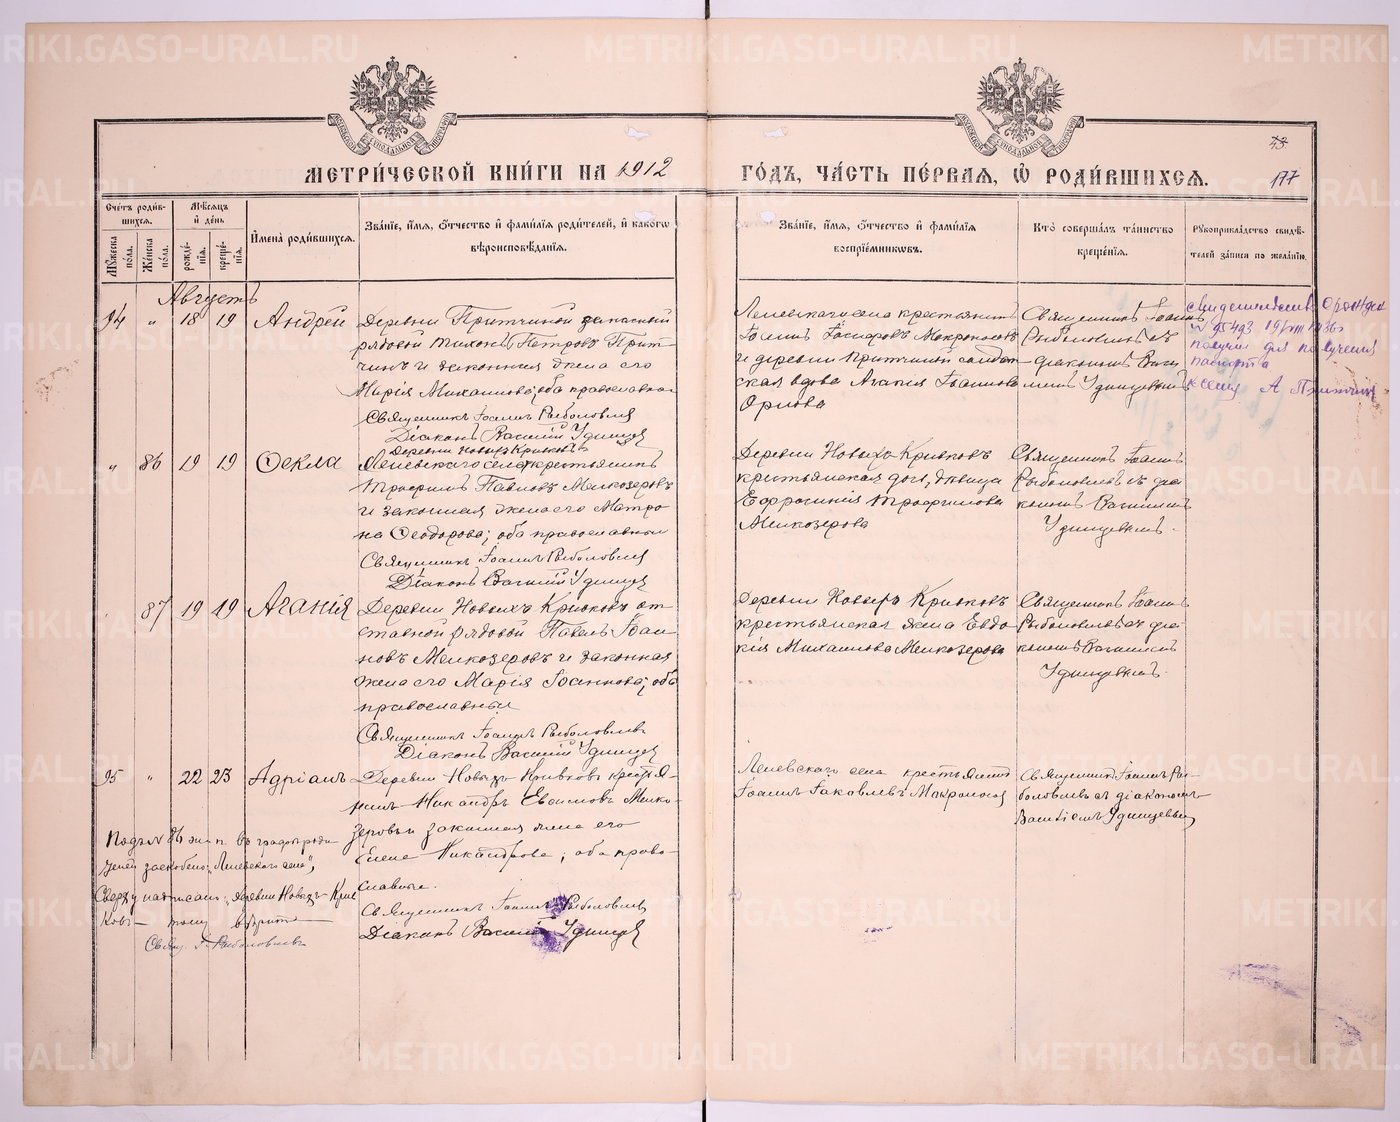 МЕТРИ́ЧЕСКОЙ КНИ́ГИ НА 1912
ГО́ДЪ, ЧА́СТЬ ПЕ́РВАЯ, Ѡ РОДИ́ВШИХСЯ.
43
177
Сче́тъ роди́в-
шихся.
Му́жеска по́ла.
Же́нска по́ла.
Мѣ́сяцъ
и де́нь
рожде́-
нія.
креще́-
нія.
Имена̀ роди́вшихся.
Зва́ніе, и́мя, о́тчество и фами́лія роди́телей, и како́гѡ
вѣроисповѣ́данія.
Зва́ніе, и́мя, о́тчество и фами́лія
воспріе́мниковъ.
Кто̀ соверша́лъ та́инство
креще́нія.
Рукоприкла́дство свидѣ́-
телей за́писи по жела́нію.
Августъ
94 " 18 19 Андрей
Деревни Притчиной запасный
рядовой Тихонъ Петровъ Прит-
чинъ и законная жена его
Марія Михаилова; оба православные
Священникъ Іоаннъ Рыболовлевъ
Діаконъ Василій Удинцевъ
Іоаннъ Іосифовъ Макроносовъ
и деревни Притчиной солдат-
ская вдова Агапія Іоаннова
Орлова
Священникъ Іоаннъ
Рыболовлевъ съ
діакономъ Васи-
ліемъ Удинцевымъ
свидетельство о рожден
получил для получения
паспорта
А Притчин
" 86 19 19 Ѳекла
Деревни Новыхъ Кривковъ
Леневскаго села крестьянинъ
Трофимъ Павловъ Мелкозеровъ
и законная жена его Матро-
на Ѳеодорова; оба православные
Священникъ Іоаннъ Рыболовлевъ
Діаконъ Василій Удинцевъ
Деревни Новыхъ Кривковъ
крестьянская дочь, дѣвица
Евфросинія Трофимова
Мелкозерова
Священникъ Іоаннъ
Рыболовлевъ съ діа-
кономъ Василіемъ
Удинцевымъ.
87 19 19 Агапія
Деревни Новыхъ Кривковъ от-
ставной рядовой Павелъ Іоан-
новъ Мелкозеровъ и законная
жена его Марія Іоаннова; оба
православные
Священникъ Іоаннъ Рыболовлевъ
Діаконъ Василій Удинцевъ
Деревни Новыхъ Кривковъ
крестьянская жена Евдо-
кія Михаилова Мелкозерова
Священникъ Іоаннъ
Рыболовлевъ съ діа-
кономъ Василіемъ
Удинцевымъ.
95 " 22 23 Адріанъ
Деревни Новыхъ Кривковъ крестья-
нинъ Никандръ Евсимовъ Мелко-
зеровъ и законная жена его
Елена Никандрова; оба право-
славные.
Священникъ Іоаннъ Рыболовлевъ
Діаконъ Василій Удинцевъ
Леневскаго села крестьянинъ
Іоаннъ Іаковлевъ Макроносовъ
Священникъ Іоаннъ Ры-
боловлевъ съ діакономъ
Василіемъ Удинцевымъ
Подъ № 86 въ графѣ роди-
телей заскоблено: „Леневскаго села",
Сверху написано: деревни Новыхъ Крив-
ковъ тому вѣрить
Свящ. І. Рыболовлевъ
METRIKI.GASO-URAL.RU